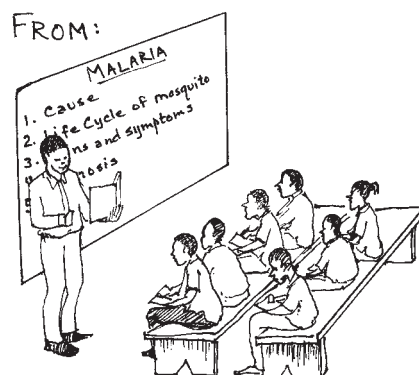 FROM:
MALARIA
1. Cause
2. Life Cycle of mosquito
3. ns and symptoms
nosis